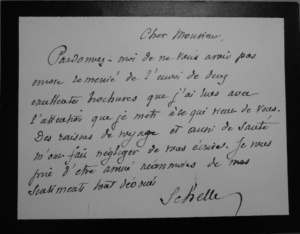 Cher Monsieur,
Pardonnez-moi de ne vous avoir pas
encore remercié de l'envoi de deux
excellentes brochures que j'ai lues avec
l'attention que je mets à ce qui vient de vous.
Des raisons de voyage et aussi de santé
m'ont fait négliger de vous écrire. Je vous
prie d'être assuré de mes
sentiments tout dévoués
Schelle